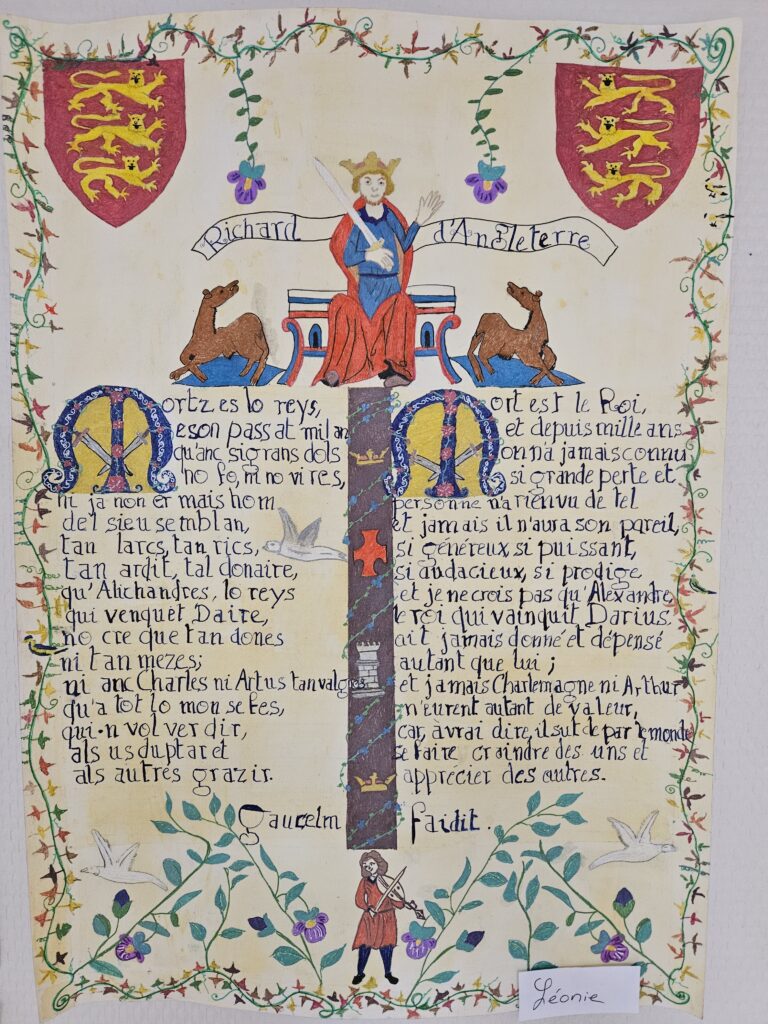 Richard d'Angleterre
Mortz es lo reys,
e son passat mil an
qu'anc si grans dols
no fo, ni no vi res,
ni ja non er mais hom
del sieu semblan,
tan larcs, tan rics,
tan ardit, tal donaire,
qu'Alichandres, lo reys
qui venquet Daire,
no cre que tan dones
ni tan mezes;
ni anc Charles ni Artus tan valgres
qu'a tot lo mon se fes,
qui·n vol ver dir,
als us duptar et
als autres grazir.
Mort est le Roi,
et depuis mille ans
on n'a jamais connu
si grande perte et
personne n'a rien vu de tel
et jamais il n'aura son pareil,
si généreux, si puissant,
si audacieux, si prodige
et je ne crois pas qu'Alexandre,
le roi qui vainquit Darius.
ait jamais donné et dépensé
autant que lui ;
et jamais Charlemagne ni Arthur
n'eurent autant de valeur,
car, à vrai dire, il sut de par le monde
se faire craindre des uns et
apprécier des autres.
Gaucelm Faidit.
Léonie